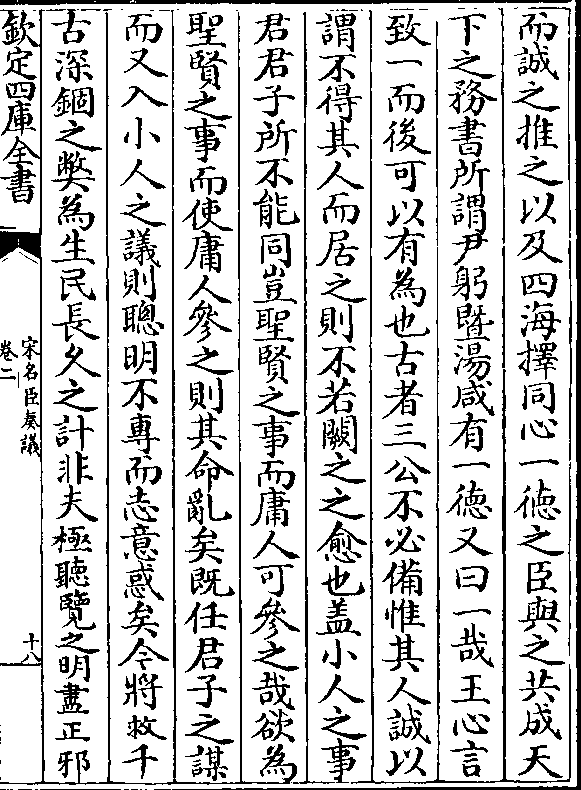 而誠之推之以及四海擇同心一徳之臣與之共成天
下之務書所謂尹躬暨湯咸有一徳又曰一哉王心言
致一而後可以有為也古者三公不必備惟其人誠以
謂不得其人而居之則不若闕之之愈也盖小人之事
君君子所不能同豈聖賢之事而庸人可參之哉欲為
聖賢之事而使庸人參之則其命亂矣既任君子之謀
而又入小人之議則聰明不專而志意惑矣今將救千
古深錮之弊為生民長久之計非夫極聽覽之明盡正邪
欽定四庫全書
宋名臣奏議
卷二
十八